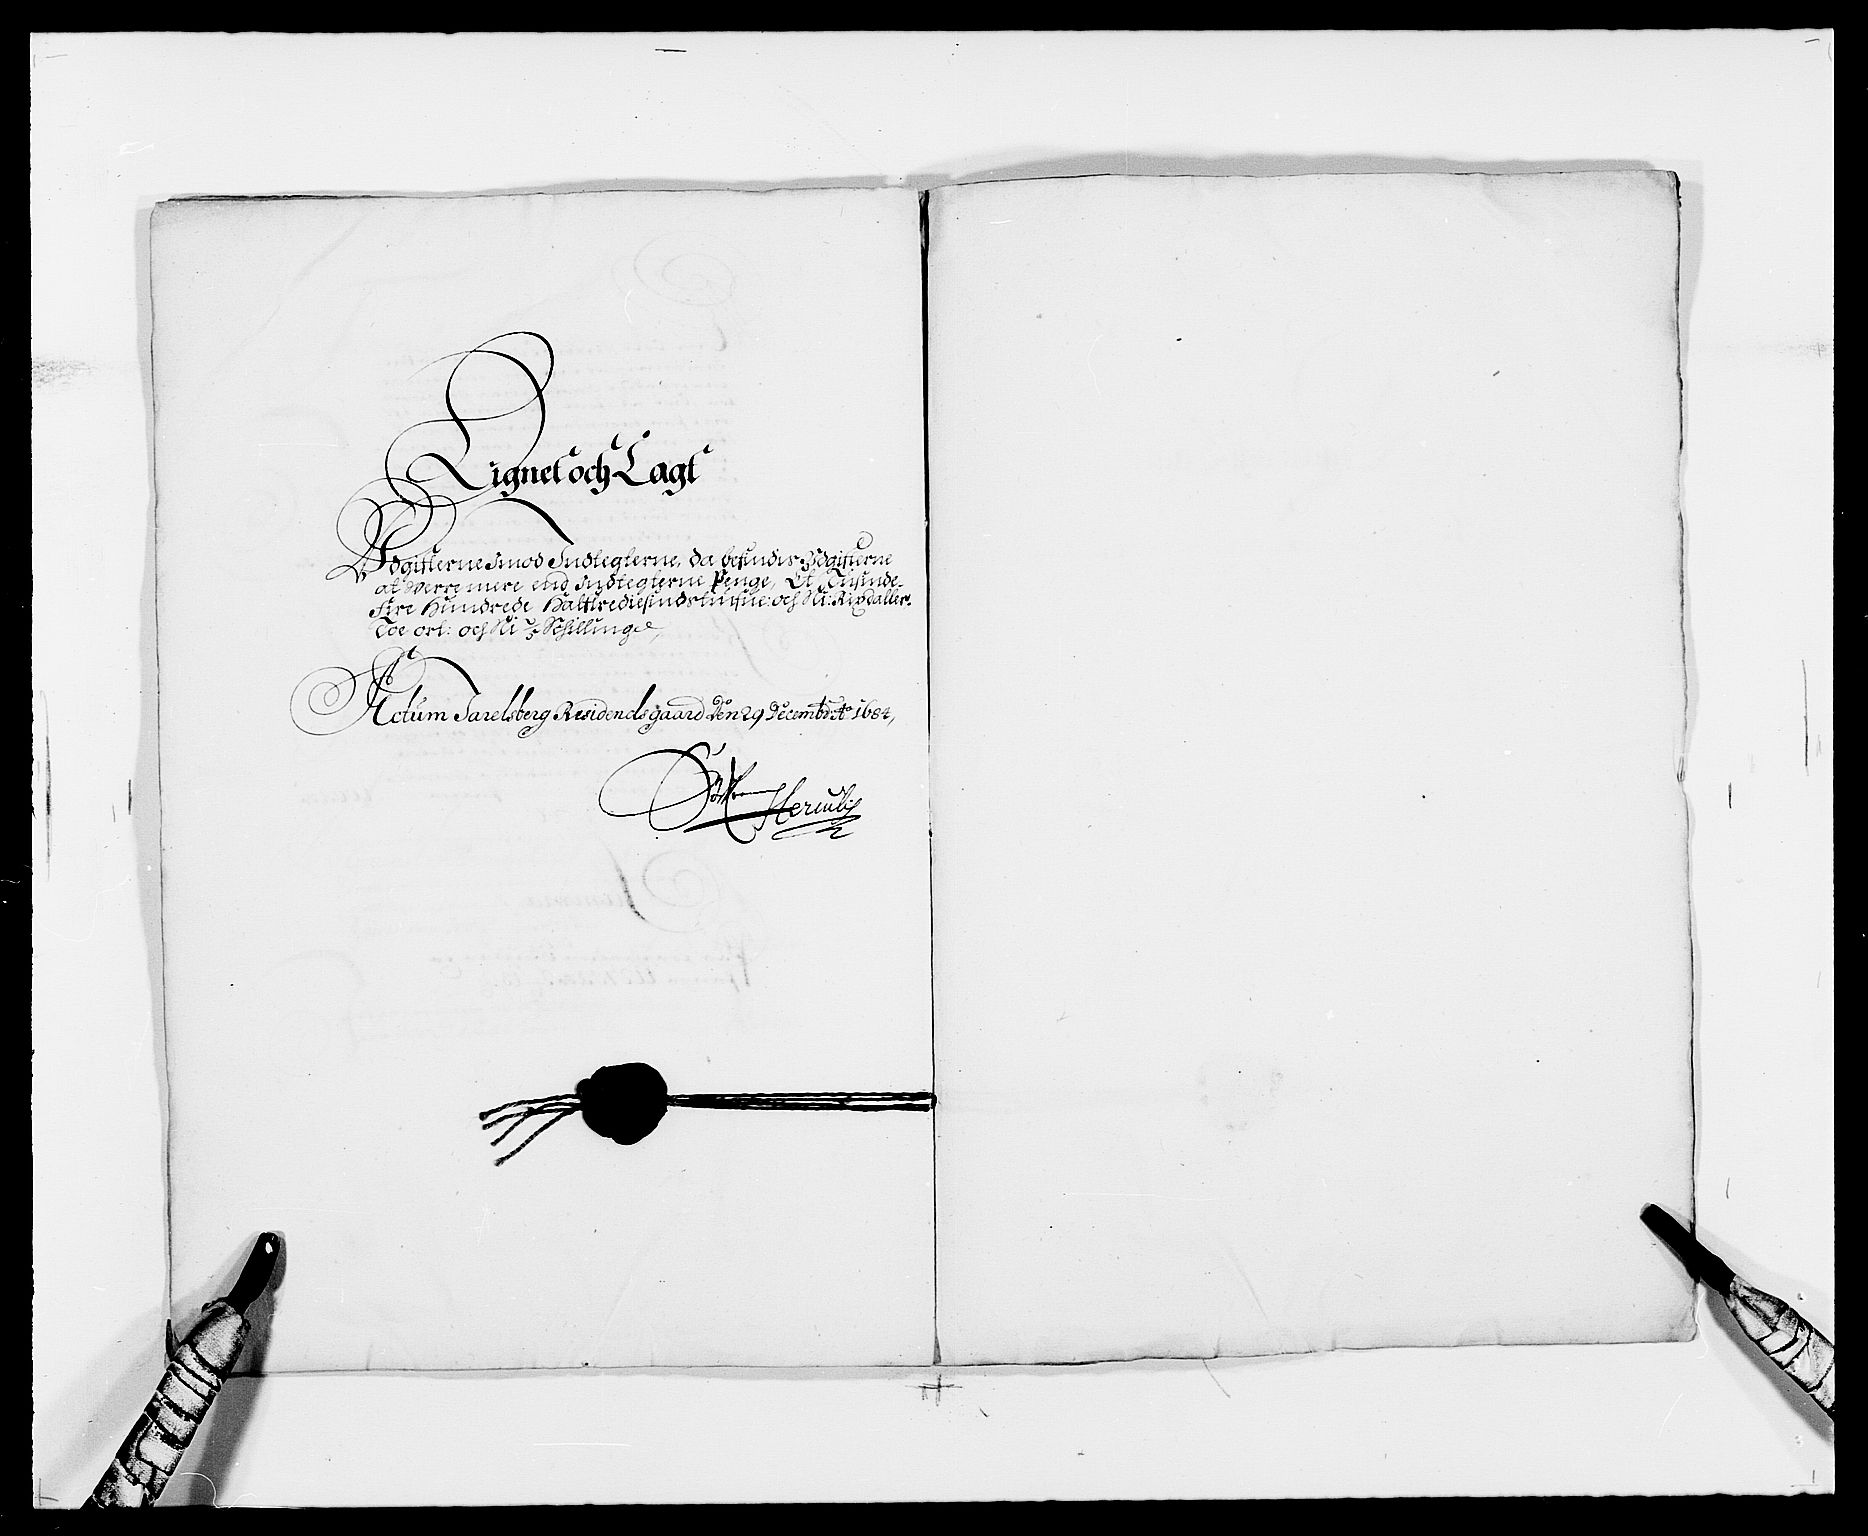 Lignet och Lagt
Udgifterne Imod Indtegterne, da befindis Udgifterne
at Werre mere end Indtegterne Penge, Et Tusinde
fire Hundrede Halffrediesindstiufue: och Ni: Rixdaller
Toe ort: och Ni Schillinge,
Actum Jarelsberg Residendsgaard Den 29 Decembr: Ao 1684,
Herculis